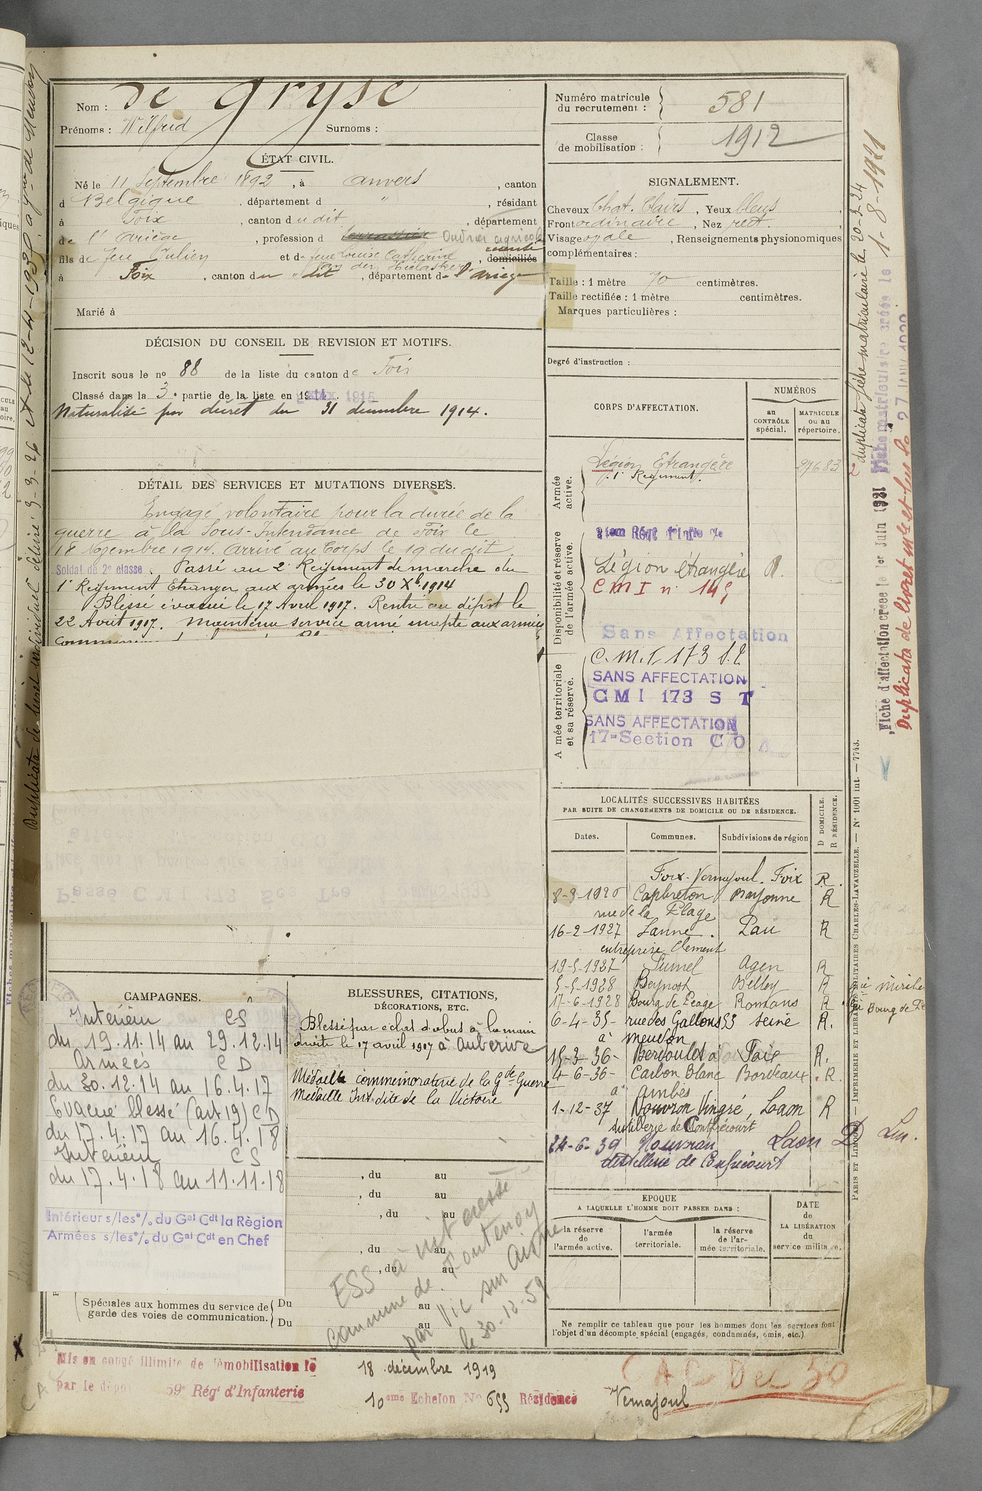 Nom : de Gryse
Prénoms : Wilfrid Surnoms :
ÉTAT CIVIL.
Né le 11 Septembre 1892, à Anvers, canton
d Belgique, département d ", résidant
à Foix, canton du dit, département
de l'Ariège, profession d Ouvrier agricole
fils de feu Julien et de feue domiciliés
à Foix, canton du dit, département de l'Ariège
Marié à
DÉCISION DU CONSEIL DE REVISION ET MOTIFS.
Inscrit sous le no 88 de la liste du canton de Foix
Classé dans la 3e partie de la liste en 1915
Naturalisé par décret du 31 décembre 1914.
DÉTAIL DES SERVICES ET MUTATIONS DIVERSES.
Engagé volontaire pour la durée de la
guerre à la Sous-Intendance de Foix le
18 Novembre 1914. Arrivé au Corps le 19 du dit,
Soldat de 2e classe. Passé au 2e Régiment de marche du
1er Régiment Etranger aux armées le 30 Xbre 1914
Blessé évacué le 17 Avril 1917. Rentré au dépôt le
22 Août 1917. Maintenu service armé inapte aux armées
CAMPAGNES.
Intérieur CS
du 19.11.14 au 29.12.14
Armées CD
du 30.12.14 au 16.4.17
Evacué blessé (art 19) CD
du 17.4.17 au 16.4.18
Intérieur CS
du 17.4.18 au 11.11.18
Intérieur s/les °/. du Gal Cdt la Région
Armées s/les °/. du Gal Cdt en Chef
Spéciales aux hommes du service de garde des voies de communication. { Du
Du
BLESSURES, CITATIONS,
DÉCORATIONS, ETC.
Blessé par éclat d'obus à la main
droite le 17 avril 1917 à Auberive
Médaille commémorative de la Gde Guerre
Médaille Interalliée de la Victoire
, du au
, du au
, du au
, du au
, du au
au
au
ESS à intéressé
Commune de Fontenoy
par Vic sur Aisne
le 30-12-59
Numéro matricule du recrutement : 581
Classe de mobilisation : 1912
SIGNALEMENT.
Cheveux Chat. Clairs, Yeux bleus
Front ordinaire, Nez rect.
Visage ovale, Renseignements physionomiques
complémentaires :
Taille : 1 mètre 70 centimètres.
Taille rectifiée : 1 mètre centimètres.
Marques particulières :
Degré d'instruction :
CORPS D'AFFECTATION.
NUMÉROS
au CONTRÔLE spécial.
MATRICULE ou au répertoire.
Armée active.
Légion Etrangère
1er Régiment.
Disponibilité et réserve de l'armée active.
Légion étrangère
C M I n° 149
Sans Affectation
Armée territoriale et sa réserve.
C.M.I. 173 S.T.
SANS AFFECTATION
CMI 173 S T
SANS AFFECTATION
17e Section C O A
LOCALITÉS SUCCESSIVES HABITÉES
PAR SUITE DE CHANGEMENTS DE DOMICILE OU DE RÉSIDENCE.
Dates. Communes. Subdivisions de région D DOMICILE. R RÉSIDENCE.
Foix-Vernajoul. Foix R.
8-9-1920 Capbreton Bayonne R
rue de la Plage
16-2-1927 Lanne. Pau R
entreprise Clément
19-5-1927 Fumel Agen R
5-5-1928 Beynost Belley R
17-6-1928 Bourg de Péage Romans R
6-4-35- rue des Gallons 53 Seine R.
à Meudon
15-3-36- à Foix R.
4-6-36- Carbon Blanc Bordeaux. R
à Ambès
1-12-37 Nouvron Vingré, Laon R
distillerie de Confrécourt
24-6-39 Nouvron Laon D
distillerie de Confrécourt
EPOQUE
A LAQUELLE L'HOMME DOIT PASSER DANS :
la réserve de l'armée active.
l'armée territoriale.
la réserve de l'armée territoriale.
DATE de LA LIBÉRATION du service militaire.
Ne remplir ce tableau que pour les hommes dont les services font
l'objet d'un décompte spécial (engagés, condamnés, omis, etc.)
Mis en congé illimité de démobilisation le 18 décembre 1919
par le dépôt 59e Régt d'Infanterie 10ème Echelon No 655 Résidence Vernajoul
PARIS ET LIMOGES. — IMPRIMERIE ET LIBRAIRIE MILITAIRES CHARLES-LAVAUZELLE. — No 1001 int. — 7743.
duplicata fiche matriculaire le 20-2-24
Fiche matriculaire créée le 1-8-1921
Fiche d'affectation créée le 1er Juin 1931
Duplicata de livret
27 JANV